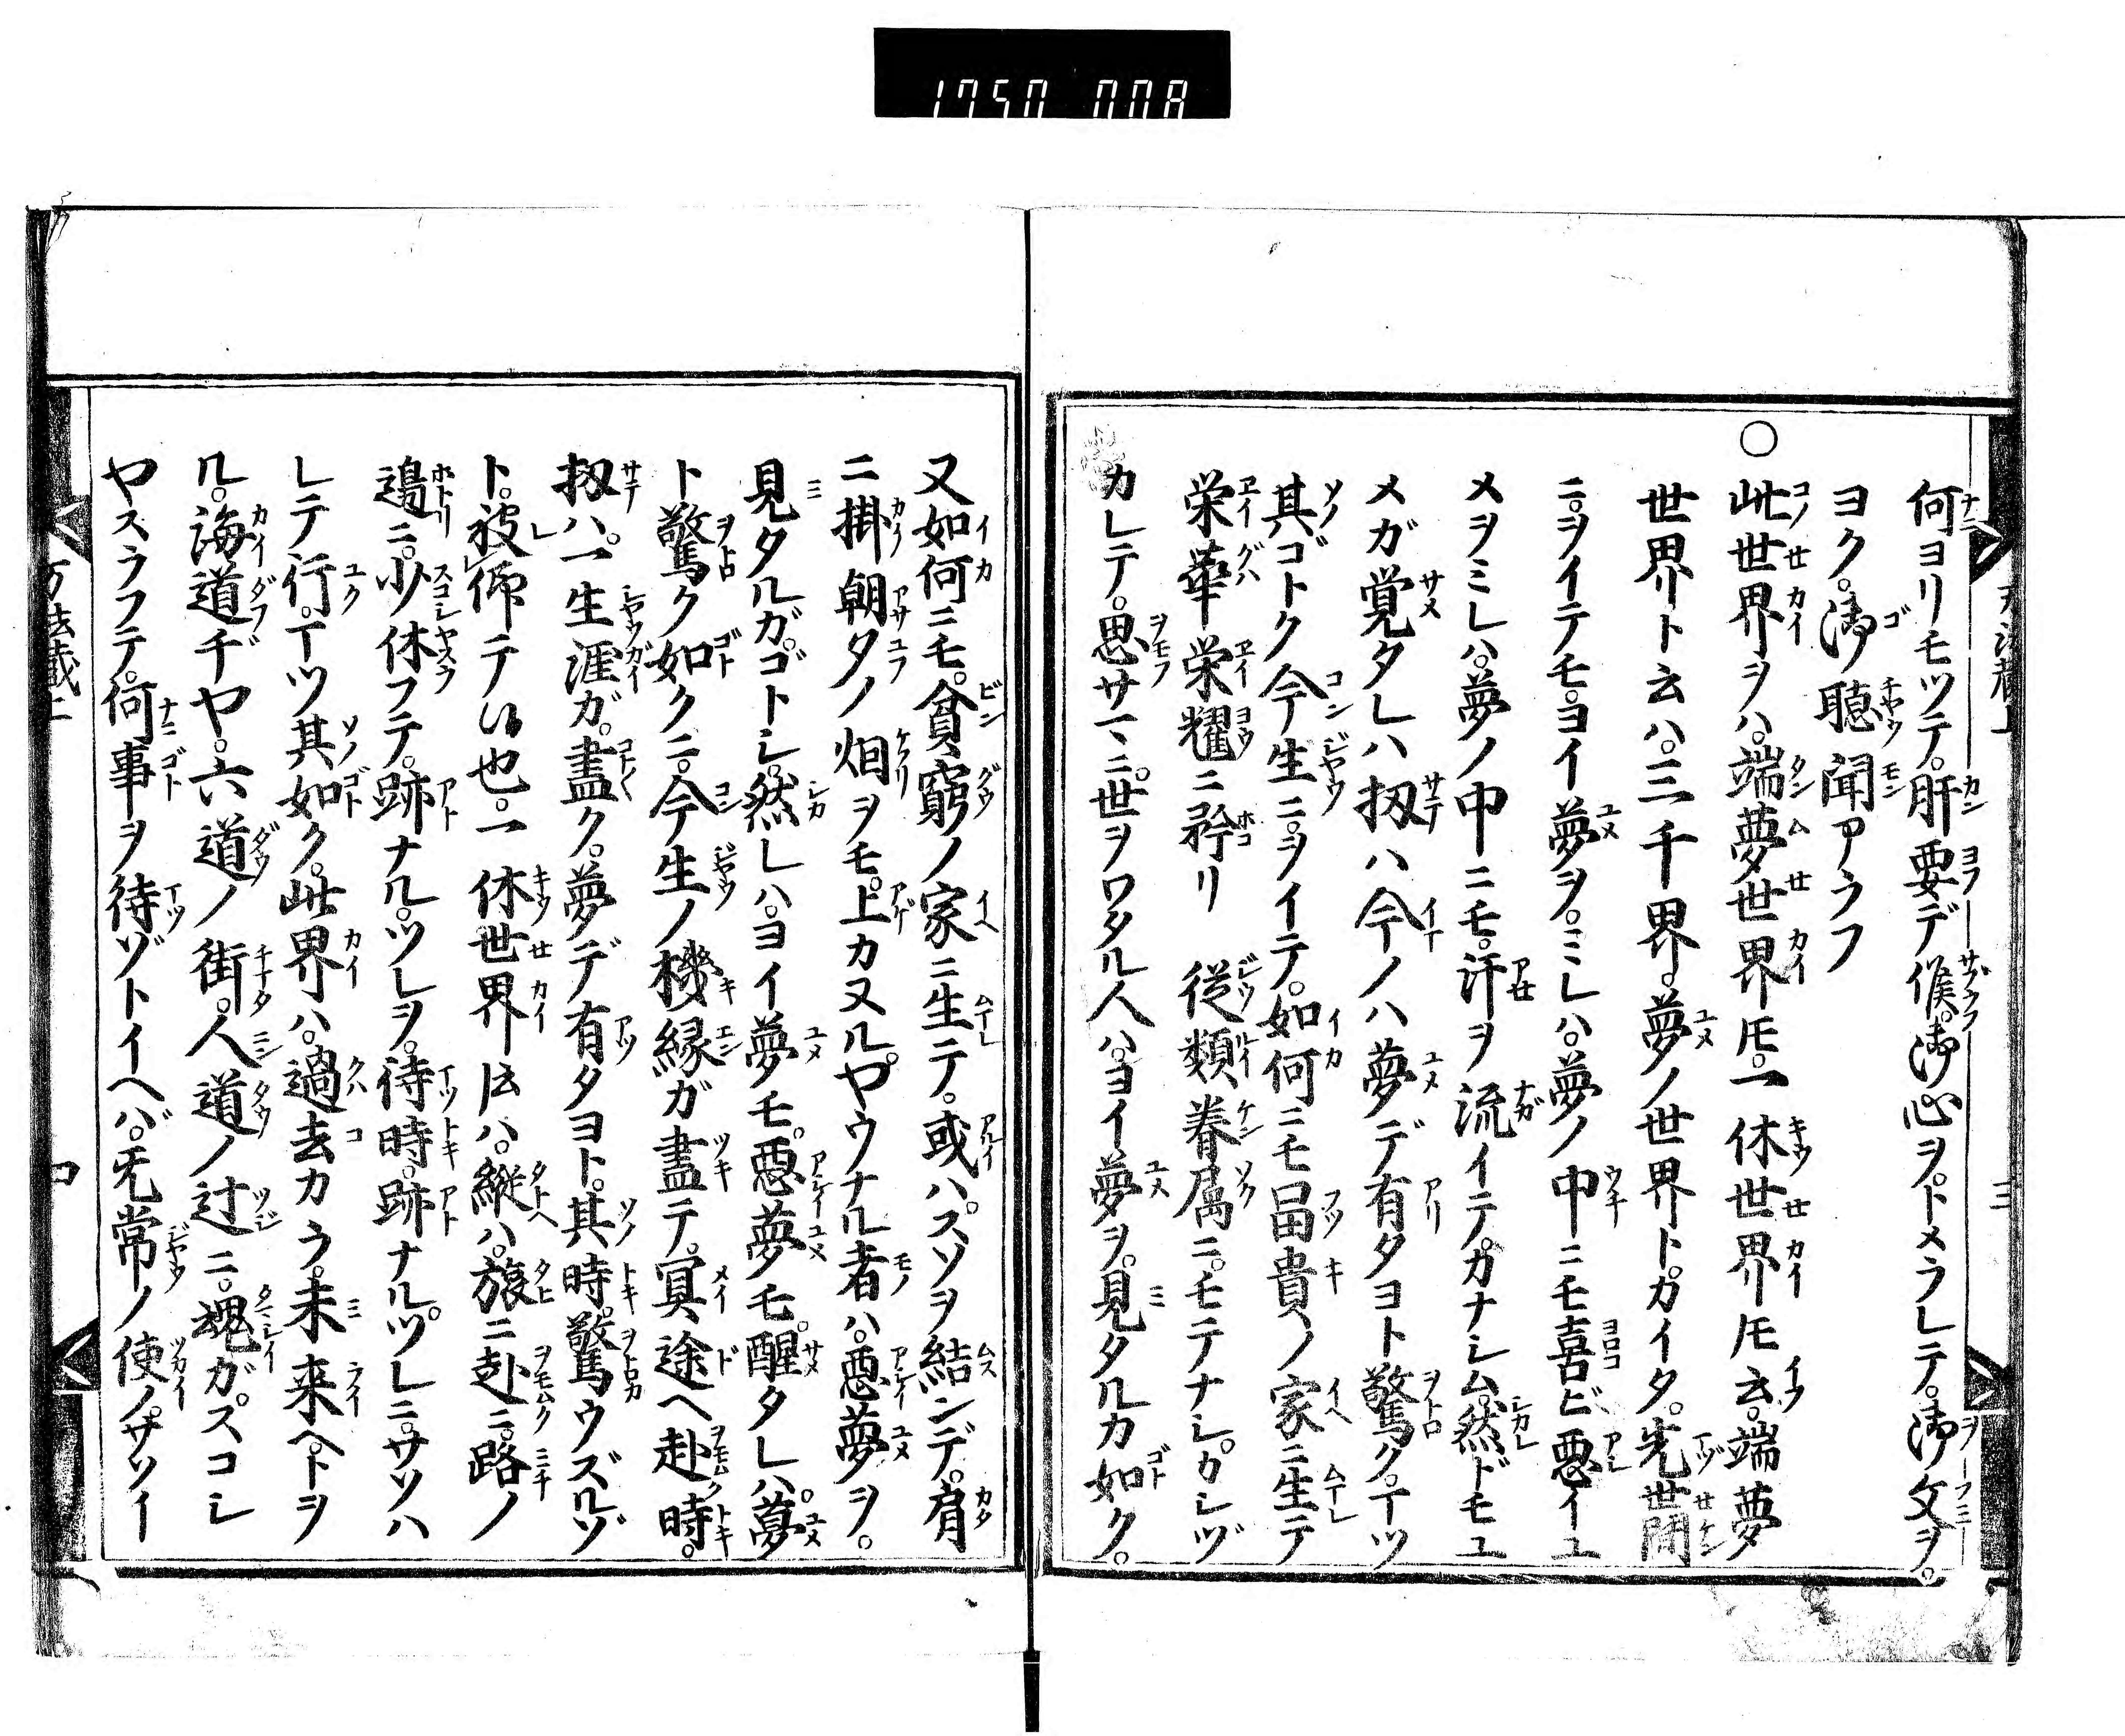 1750 008
何ヨリモツテ。肝要デ候。御心ヲ。トメラレテ。御文ヲ。
ヨク。御聴聞アラフ
○此世界ヲハ。端夢世界ㇳモ。一休世界ㇳモ云。端夢
世界ト云ハ。三千界。夢ノ世界ト。カイタ。先世間
ニ。ヲイテモ。ヨイ夢ヲ。ミレハ。夢ノ中ニモ喜ビ悪イユ
メヲミレハ。夢ノ中ニモ。汗ヲ流イテ。カナシム。然ドモユ
メガ覚タレハ扨ハ今ノハ夢デ有タヨト驚ク。マツ
其ゴトク今生ニ。ヲイテ。如何ニモ冨貴ノ家ニ生テ
栄華栄耀ニ矜リ従類眷属ニ。モテナシ。カシヅ
カレテ。思サマニ。世ヲワタル人ハ。ヨイ夢ヲ。見タルカ如ク。
又如何ニモ。貧窮ノ家ニ生テ。或ハ。スソヲ結ンデ。肩
ニ掛朝タノ烟ヲモ。上カヌル。ヤウナル者ハ。悪夢ヲ。
見タルガ。ゴトシ。然レハ。ヨイ夢モ。悪夢モ。醒タレハ。夢
ト驚ク如クニ。今生ノ機縁ガ盡テ。冥途ヘ赴時。
扨ハ。一生涯ガ。盡ク。夢デ有タヨト。其時驚ウズルゾ
ト。被レ仰テ候也。一休世界ㇳ云ハ。縦ハ。旅ニ赴ニ。路ノ
邉ニ。少休フテ。跡ナル。ツレヲ。待時。跡ナル。ツレニ。サソハ
レテ行。マツ其如ク。此界ハ。過去カラ。未来ヘ。トヲ
ル。海道ヂヤ。六道ノ街。人道ノ辻ニ。魂ガ。スコシ
ヤスラフテ。何事ヲ待ゾトイヘバ。无常ノ使ノ。サソイ